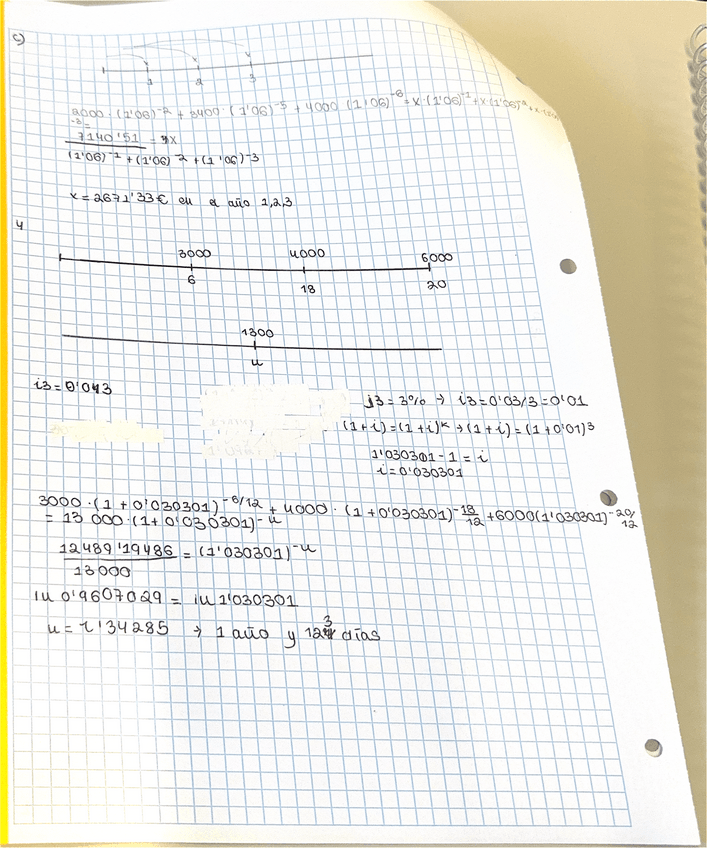 c)
1 2 3
2000 · (1'06)^-2 + 3400 · (1'06)^-5 + 4000 (1'06)^-6 = x · (1'06)^-1 + x · (1'06)^-2 + x
-3 =
7140'51 = x
(1'06)^-1 + (1'06)^-2 + (1'06)^-3
x = 2671'33€ en el año 1,2,3
4
3000 4000 6000
6 18 20
1300
n
i3 = 0'043
j3 = 3% → i3 = 0'03/3 = 0'01
(1+i) = (1+i)^k → (1+i) = (1+0'01)^3
1'030301 - 1 = i
i = 0'030301
3000 · (1 + 0'030301)^-6/12 + 4000 · (1 + 0'030301)^-18/12 + 6000 (1'030301)^-20/12
= 13 000 · (1 + 0'030301)^-n
12489'19486 = (1'030301)^-n
13000
ln 0'9607029 = ln 1'030301
n = 1'34285 → 1 año y 123 días